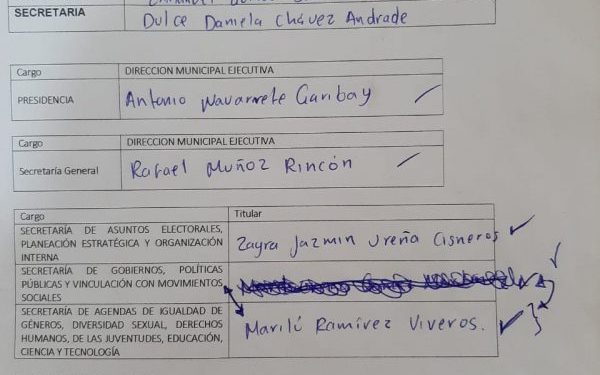 SECRETARIA
Dulce Daniela Chávez Andrade
Cargo
DIRECCION MUNICIPAL EJECUTIVA
PRESIDENCIA
Antonio Navarrete Garibay
Cargo
DIRECCION MUNICIPAL EJECUTIVA
Secretaría General
Rafael Muñoz Rincón
Cargo
Titular
SECRETARÍA DE ASUNTOS ELECTORALES,
PLANEACIÓN ESTRATÉGICA Y ORGANIZACIÓN
INTERNA
Zayra Jazmin Ureña Cisneros
SECRETARÍA DE GOBIERNOS, POLÍTICAS
PÚBLICAS Y VINCULACIÓN CON MOVIMIENTOS
SOCIALES
SECRETARÍA DE AGENDAS DE IGUALDAD DE
GÉNEROS, DIVERSIDAD SEXUAL, DERECHOS
HUMANOS, DE LAS JUVENTUDES, EDUCACIÓN,
CIENCIA Y TECNOLOGÍA
Marilú Ramírez Viveros.